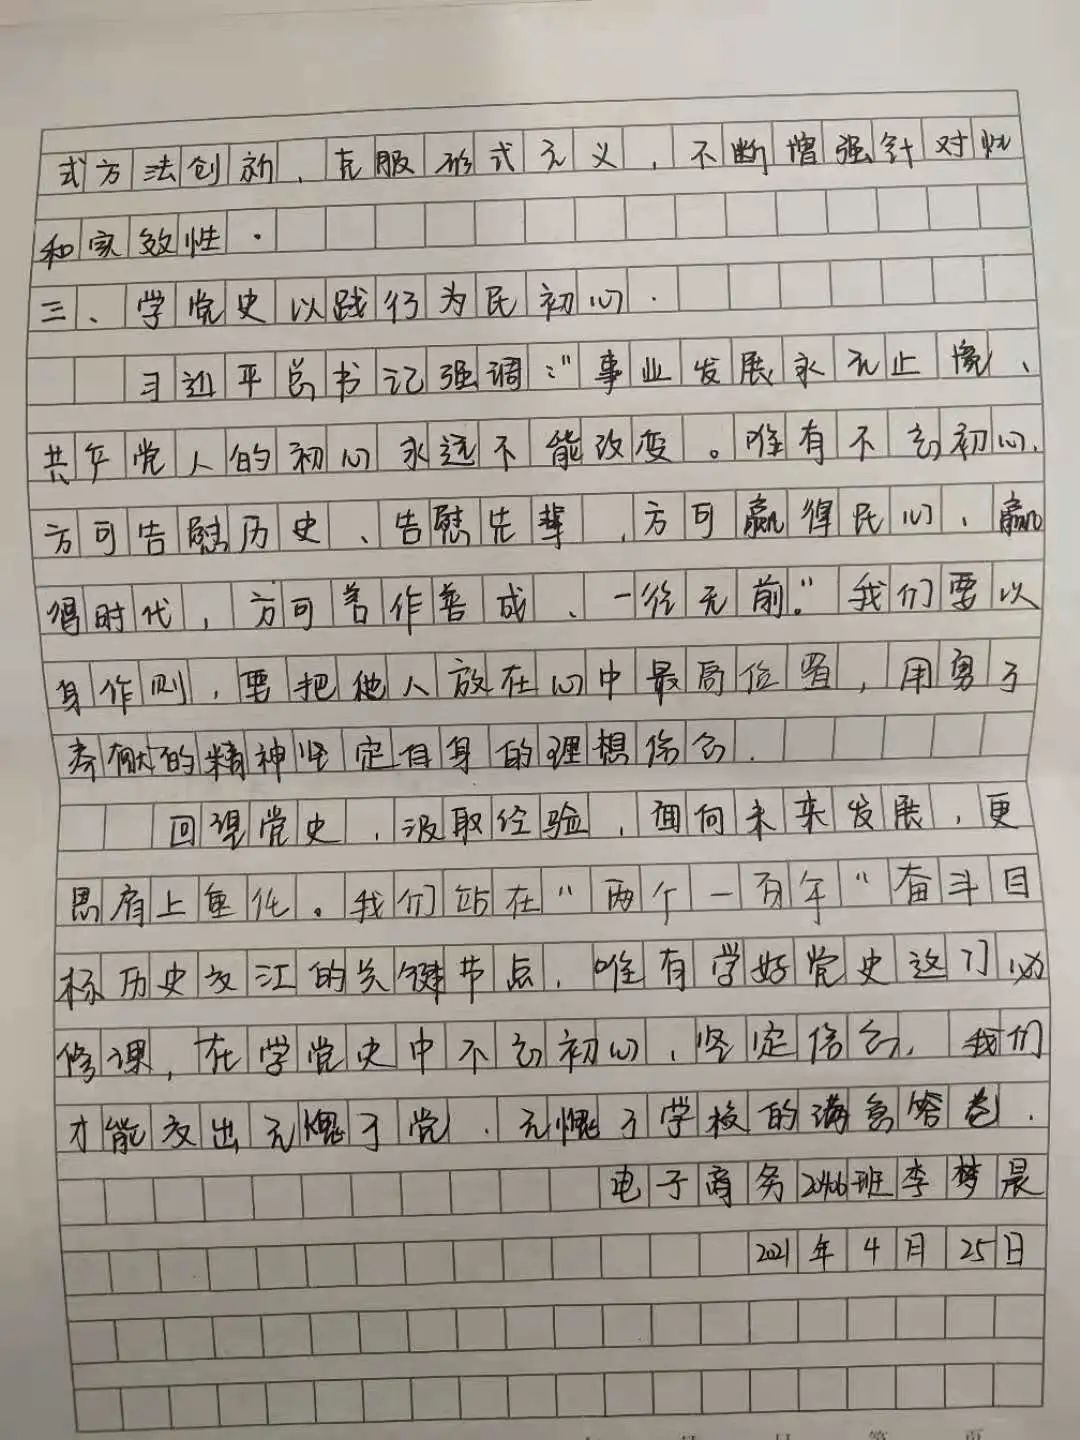 式方法创新，克服形式元义，不断增强针对性
和实效性.
三、学党史以践行为民初心.
习近平总书记强调:"事业发展永无止境、
共产党人的初心永远不能改变。唯有不忘初心.
方可告慰历史、告慰先辈，方可赢得民心、赢
得时代，方可善作善成、一往无前."我们要以
身作则，要把他人放在心中最高位置，用勇于
奉献的精神坚定自身的理想信念.
回望党史，汲取经验，面向未来发展，更
思肩上重任。我们站在"两个一百年"奋斗目
标历史交汇的关键节点，唯有学好党史这门必
修课，在学党史中不忘初心、坚定信念，我们
才能交出无愧于党、无愧于学校的满意答卷.
电子商务2046班李梦晨
2021年4月25日